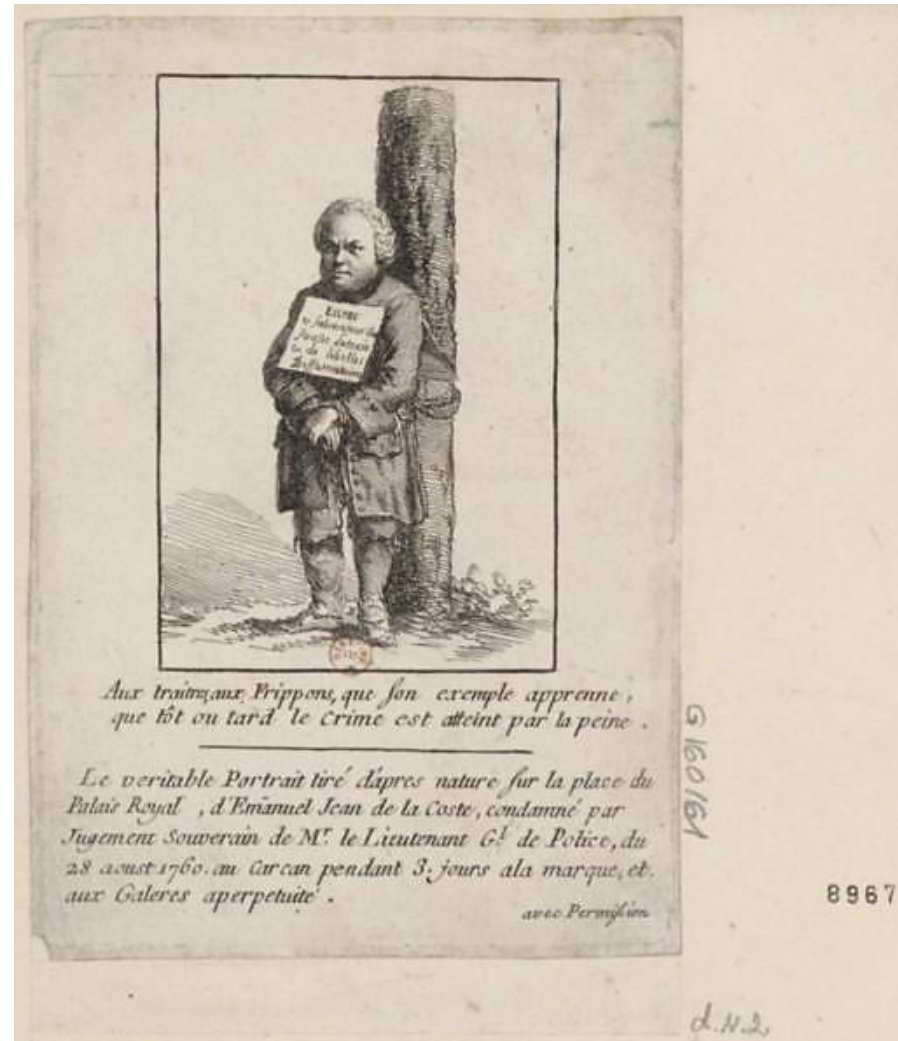 Escroc
de
Aux traitres, aux Frippons, que son exemple apprenne,
que tôt ou tard le Crime est atteint par la peine.
Le veritable Portrait tiré d'apres nature sur la place du
Palais Royal, d'Emanuel Jean de la Coste, condamné par
Jugement Souverain de Mr. le Lieutenant Gl. de Police, du
28 aoust 1760. au Carcan pendant 3. jours ala marque, et
aux Galeres aperpetuité.
avec Permission
G 160161
8967
d.N.2